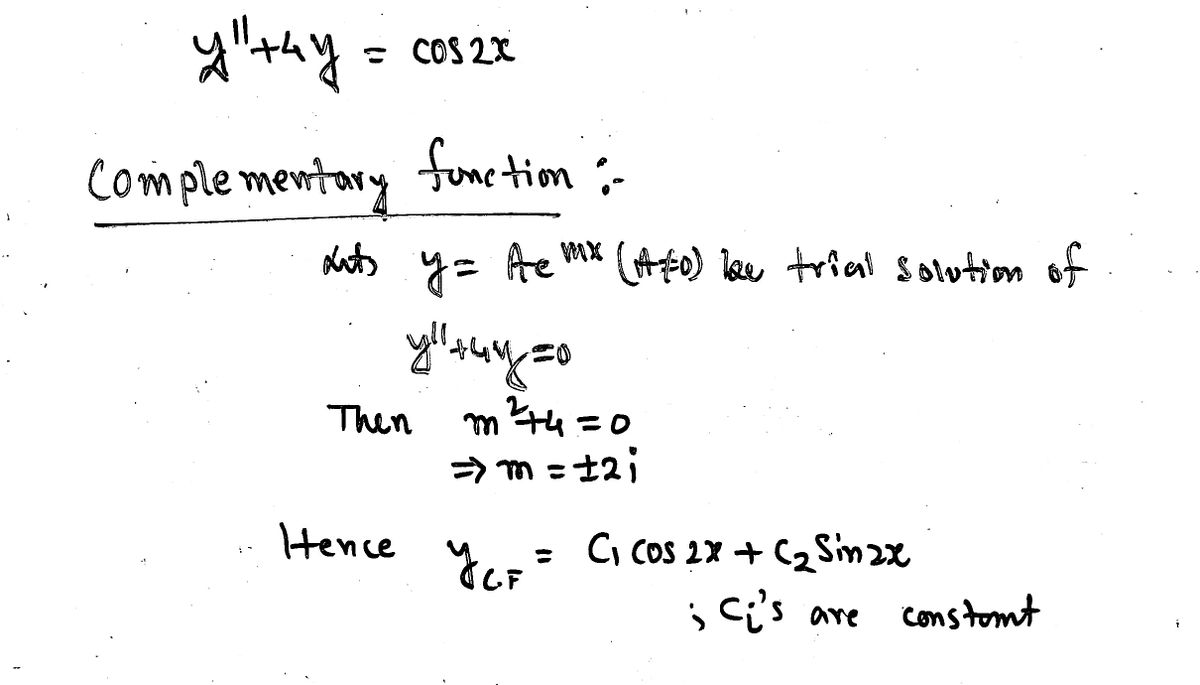 y''+4y = cos2x
Complementary function :-
Lets y = Ae^mx (A≠0) be trial solution of
y''+4y=0
Then m²+4=0
⇒ m = ±2i
Hence y_C.F = C₁ cos 2x + C₂ Sin2x
; Cᵢ's are constant